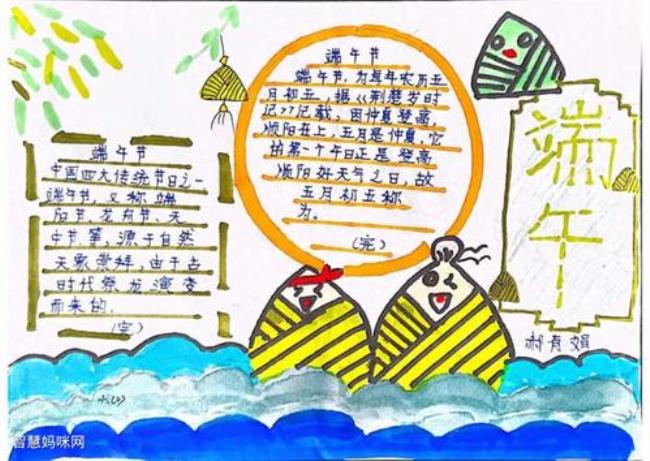 端午节
中国四大传统节日之一
端午节,又称端
阳节,龙舟节、天
中节等,源于自然
天象崇拜,由于古
时代祭龙演变
而来的.
(完)
端午节
端午节,为每年农历五
月初五,据《荆楚岁时
记》记载,因仲夏登高,
顺阳在上,五月是仲夏,它
的第一个午日正是登高
顺阳好天气之日,故
五月初五称
为。
(完)
端
午
郝有娟
智慧妈咪网